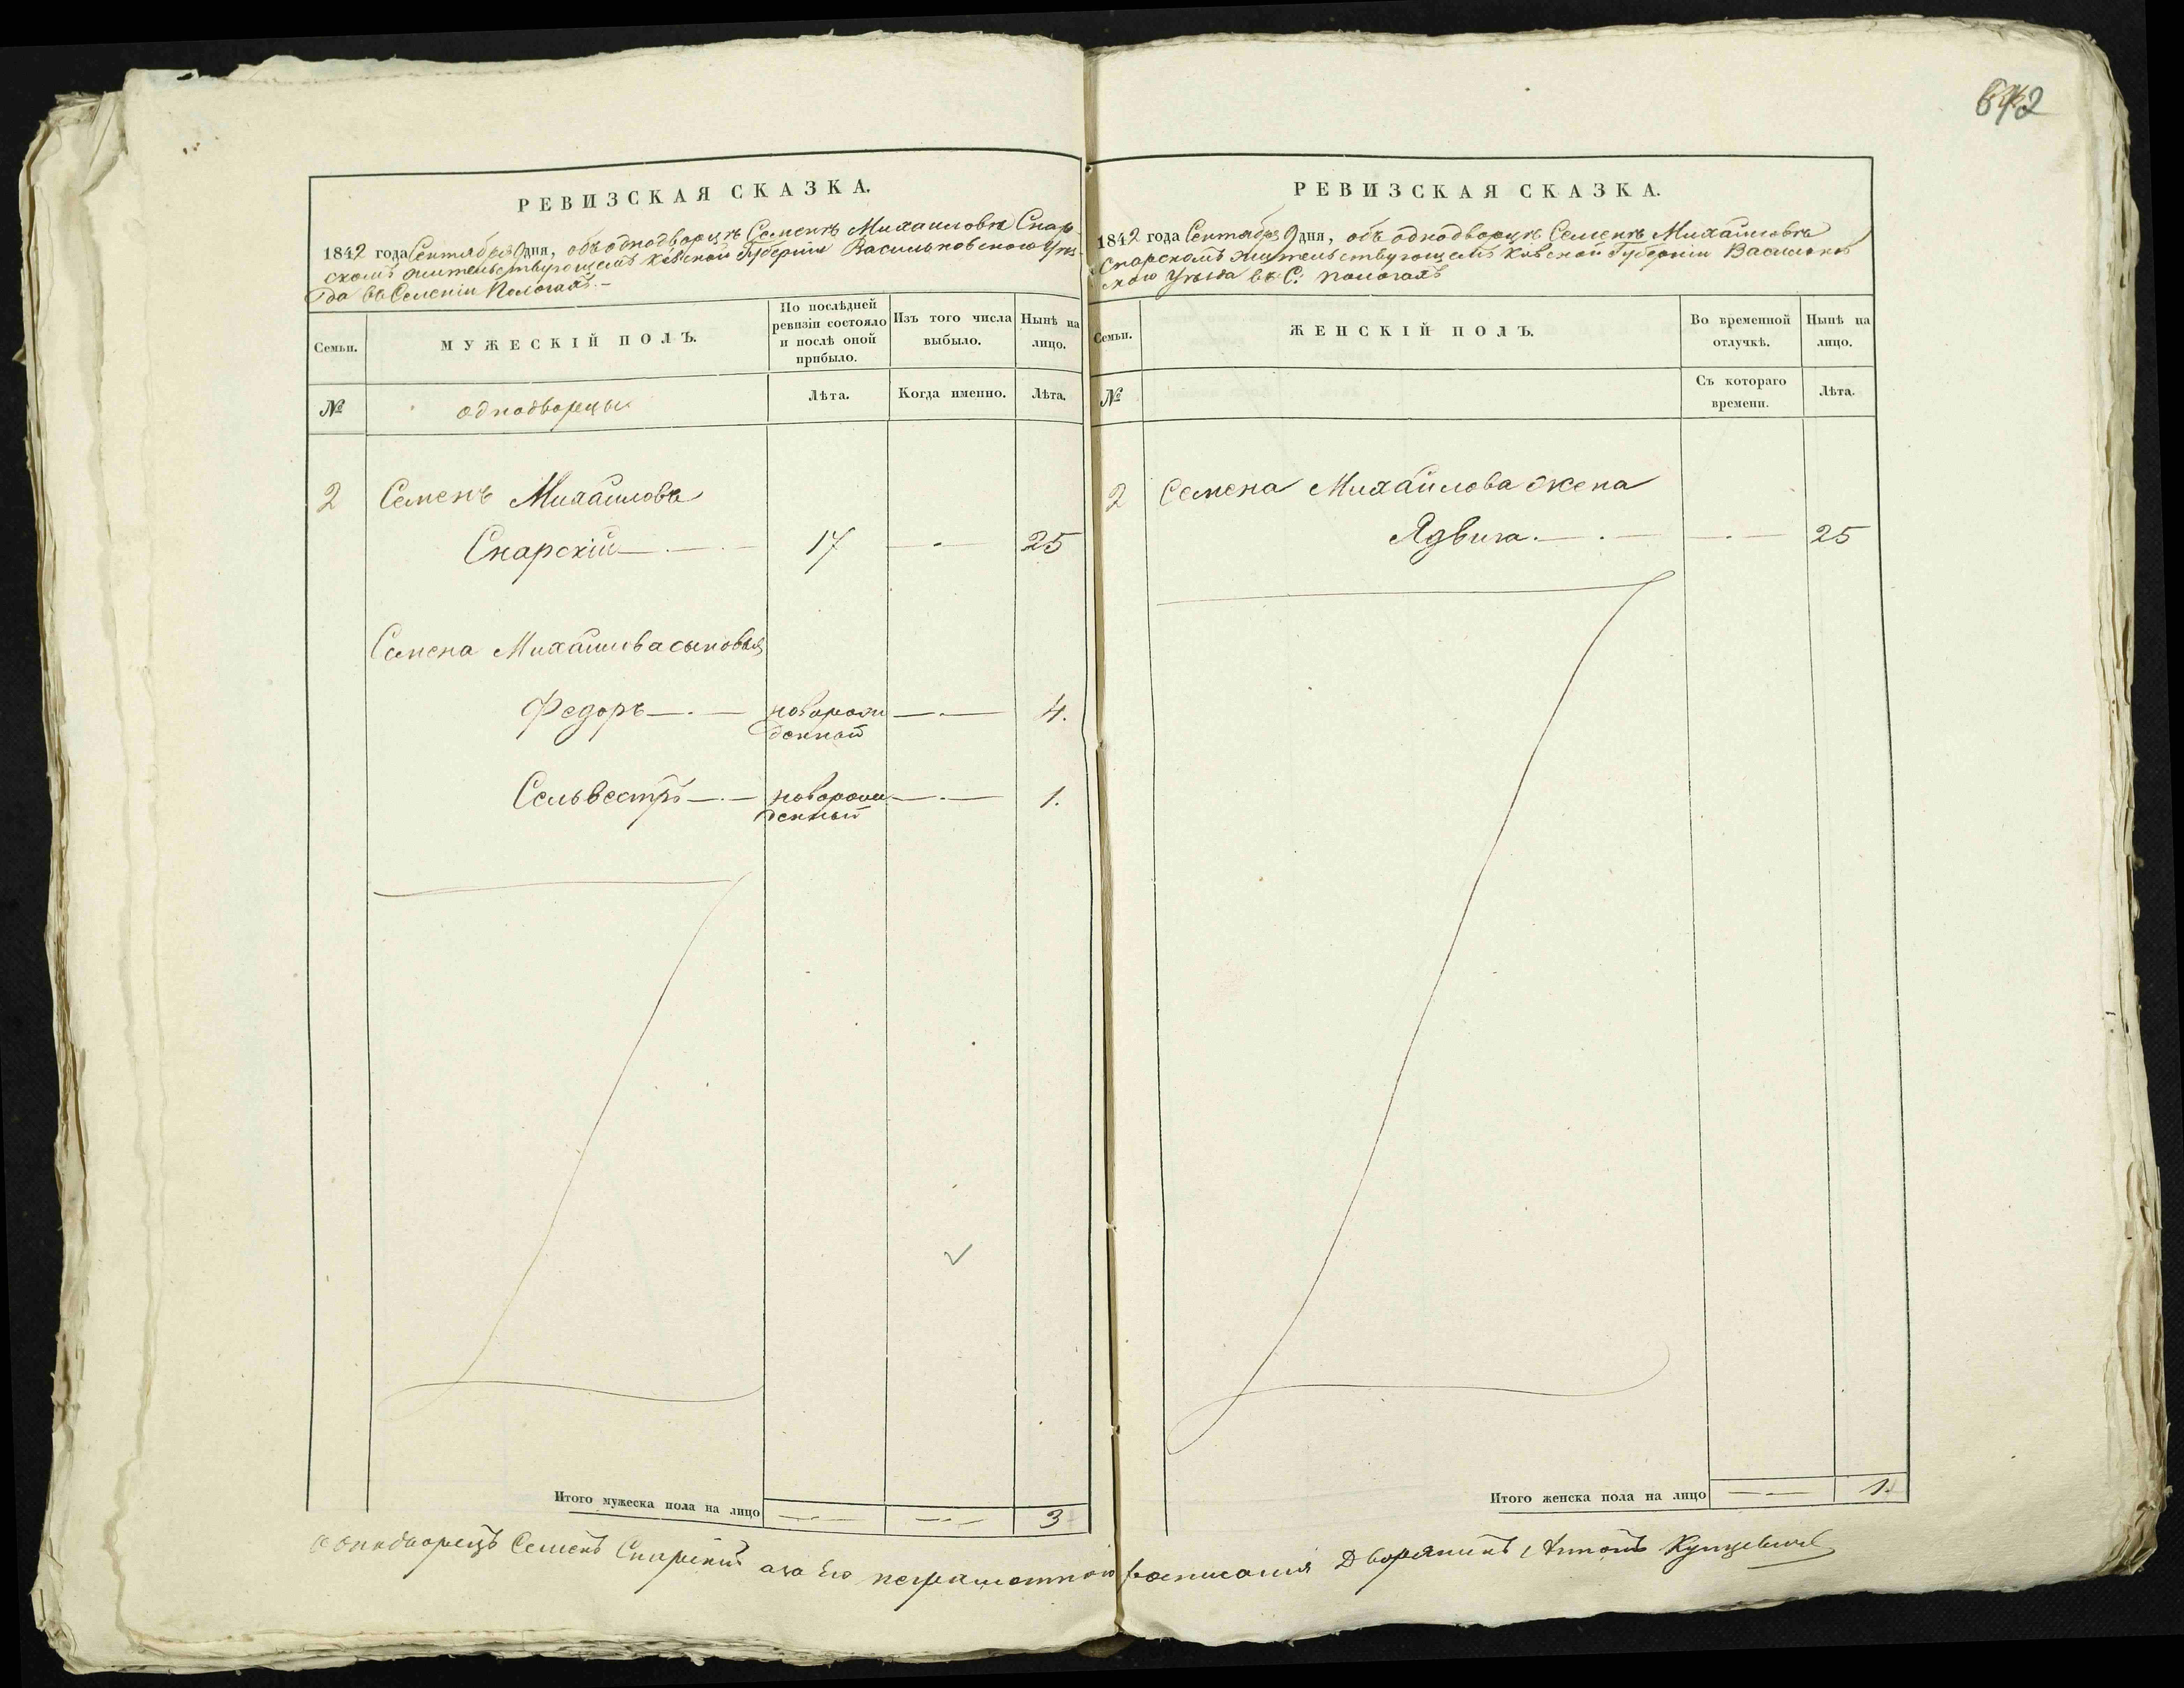 РЕВИЗСКАЯ СКАЗКА.
1842 года Сентября 9 дня, объ однодворцѣ Семенѣ Михайловѣ Снар-
скомъ жительствующемъ Кіевской Губерніи Васильковского Уѣз-
да въ Селеніи Пологахъ.—
Семьи.
МУЖЕСКІЙ ПОЛЪ.
По послѣдней ревизіи состояло и послѣ оной прибыло.
Изъ того числа выбыло.
Нынѣ на лицо.
№
однодворцы
Лѣта.
Когда именно.
Лѣта.
2 Семенъ Михайловъ
Снарскій 17 25
Семена Михайлова сыновья
Федоръ новорож 4.
денной
Сельвестръ новорож 1.
денный
Итого мужеска пола на лицо 3
642
РЕВИЗСКАЯ СКАЗКА.
1842 года Сентября 9 дня, объ однодворцѣ Семенѣ Михайловѣ
Снарскомъ жительствующемъ Кіевской Губерніи Васильков
ского Уѣзда въ С: Пологахъ
Семьи.
ЖЕНСКІЙ ПОЛЪ.
Во временной отлучкѣ.
Нынѣ на лицо.
№
Съ котораго времени.
Лѣта.
2 Семена Михайлова жена
Ядвига. 25
Итого женска пола на лицо 1.
Однодворецъ Семенъ Снарскій а за Его неграмотного росписался Дворянинъ Антонъ Куцевичъ